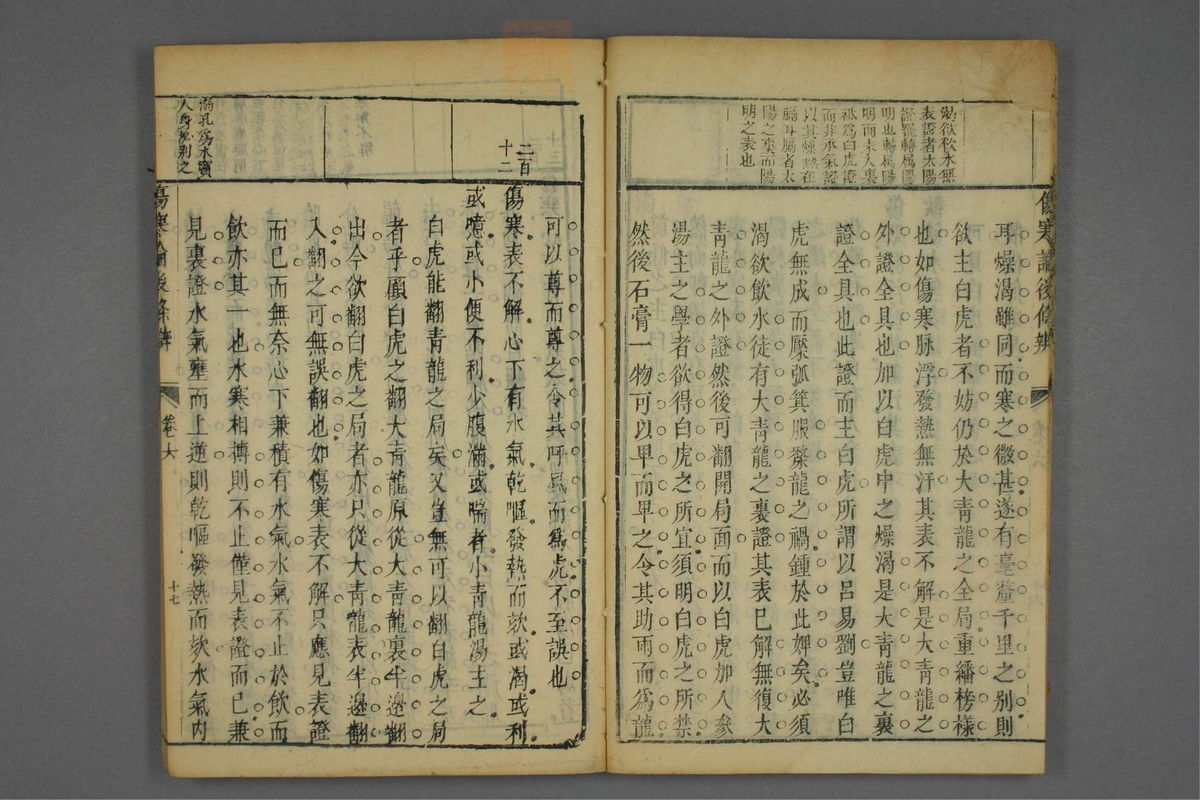 傷寒論後條辨
渴欲飲水無
表證者太陽
證罷轉屬陽
明也轉屬陽
明而未入裏
祗為白虎證
而非承氣證
以其燥熱在
膈耳膈者太
陽之裏而陽
明之表也
耳燥渴雖同而寒之微甚遂有毫釐千里之別則
欲主白虎者不妨仍於大青龍之全局重繙榜樣
也如傷寒脉浮發熱無汗其表不解是大青龍之
外證全具也加以白虎中之燥渴是大青龍之裏
證全具也此證而主白虎所謂以呂易劉豈唯白
虎無成而檿弧箕服漦龍之禍鍾於此婢矣必須
渴欲飲水徒有大青龍之裏證其表已解無復大
青龍之外證然後可翻開局面而以白虎加人參
湯主之學者欲得白虎之所宜須明白虎之所禁
然後石膏一物可以早而早之令其助雨而為龍
可以尊而尊之令其呼風而為虎不至誤也
二百
十二
傷寒表不解心下有水氣乾嘔發熱而欬或渴或利
或噫或小便不利少腹滿或喘者小青龍湯主之
白虎能翻青龍之局矣又豈無可以翻白虎之局
者乎顧白虎之翻大青龍原從大青龍裏半邊翻
出今欲翻白虎之局者亦只從大青龍表半邊翻
入翻之可無誤翻也如傷寒表不解只應見表證
而已而無奈心下兼積有水氣水氣不止於飲而
飲亦其一也水寒相搏則不止僅見表證而已兼
見裏證水氣壅而上逆則乾嘔發熱而欬水氣內
溺孔為水竇
人身泌別之
傷寒論後條辨
卷之六
十七